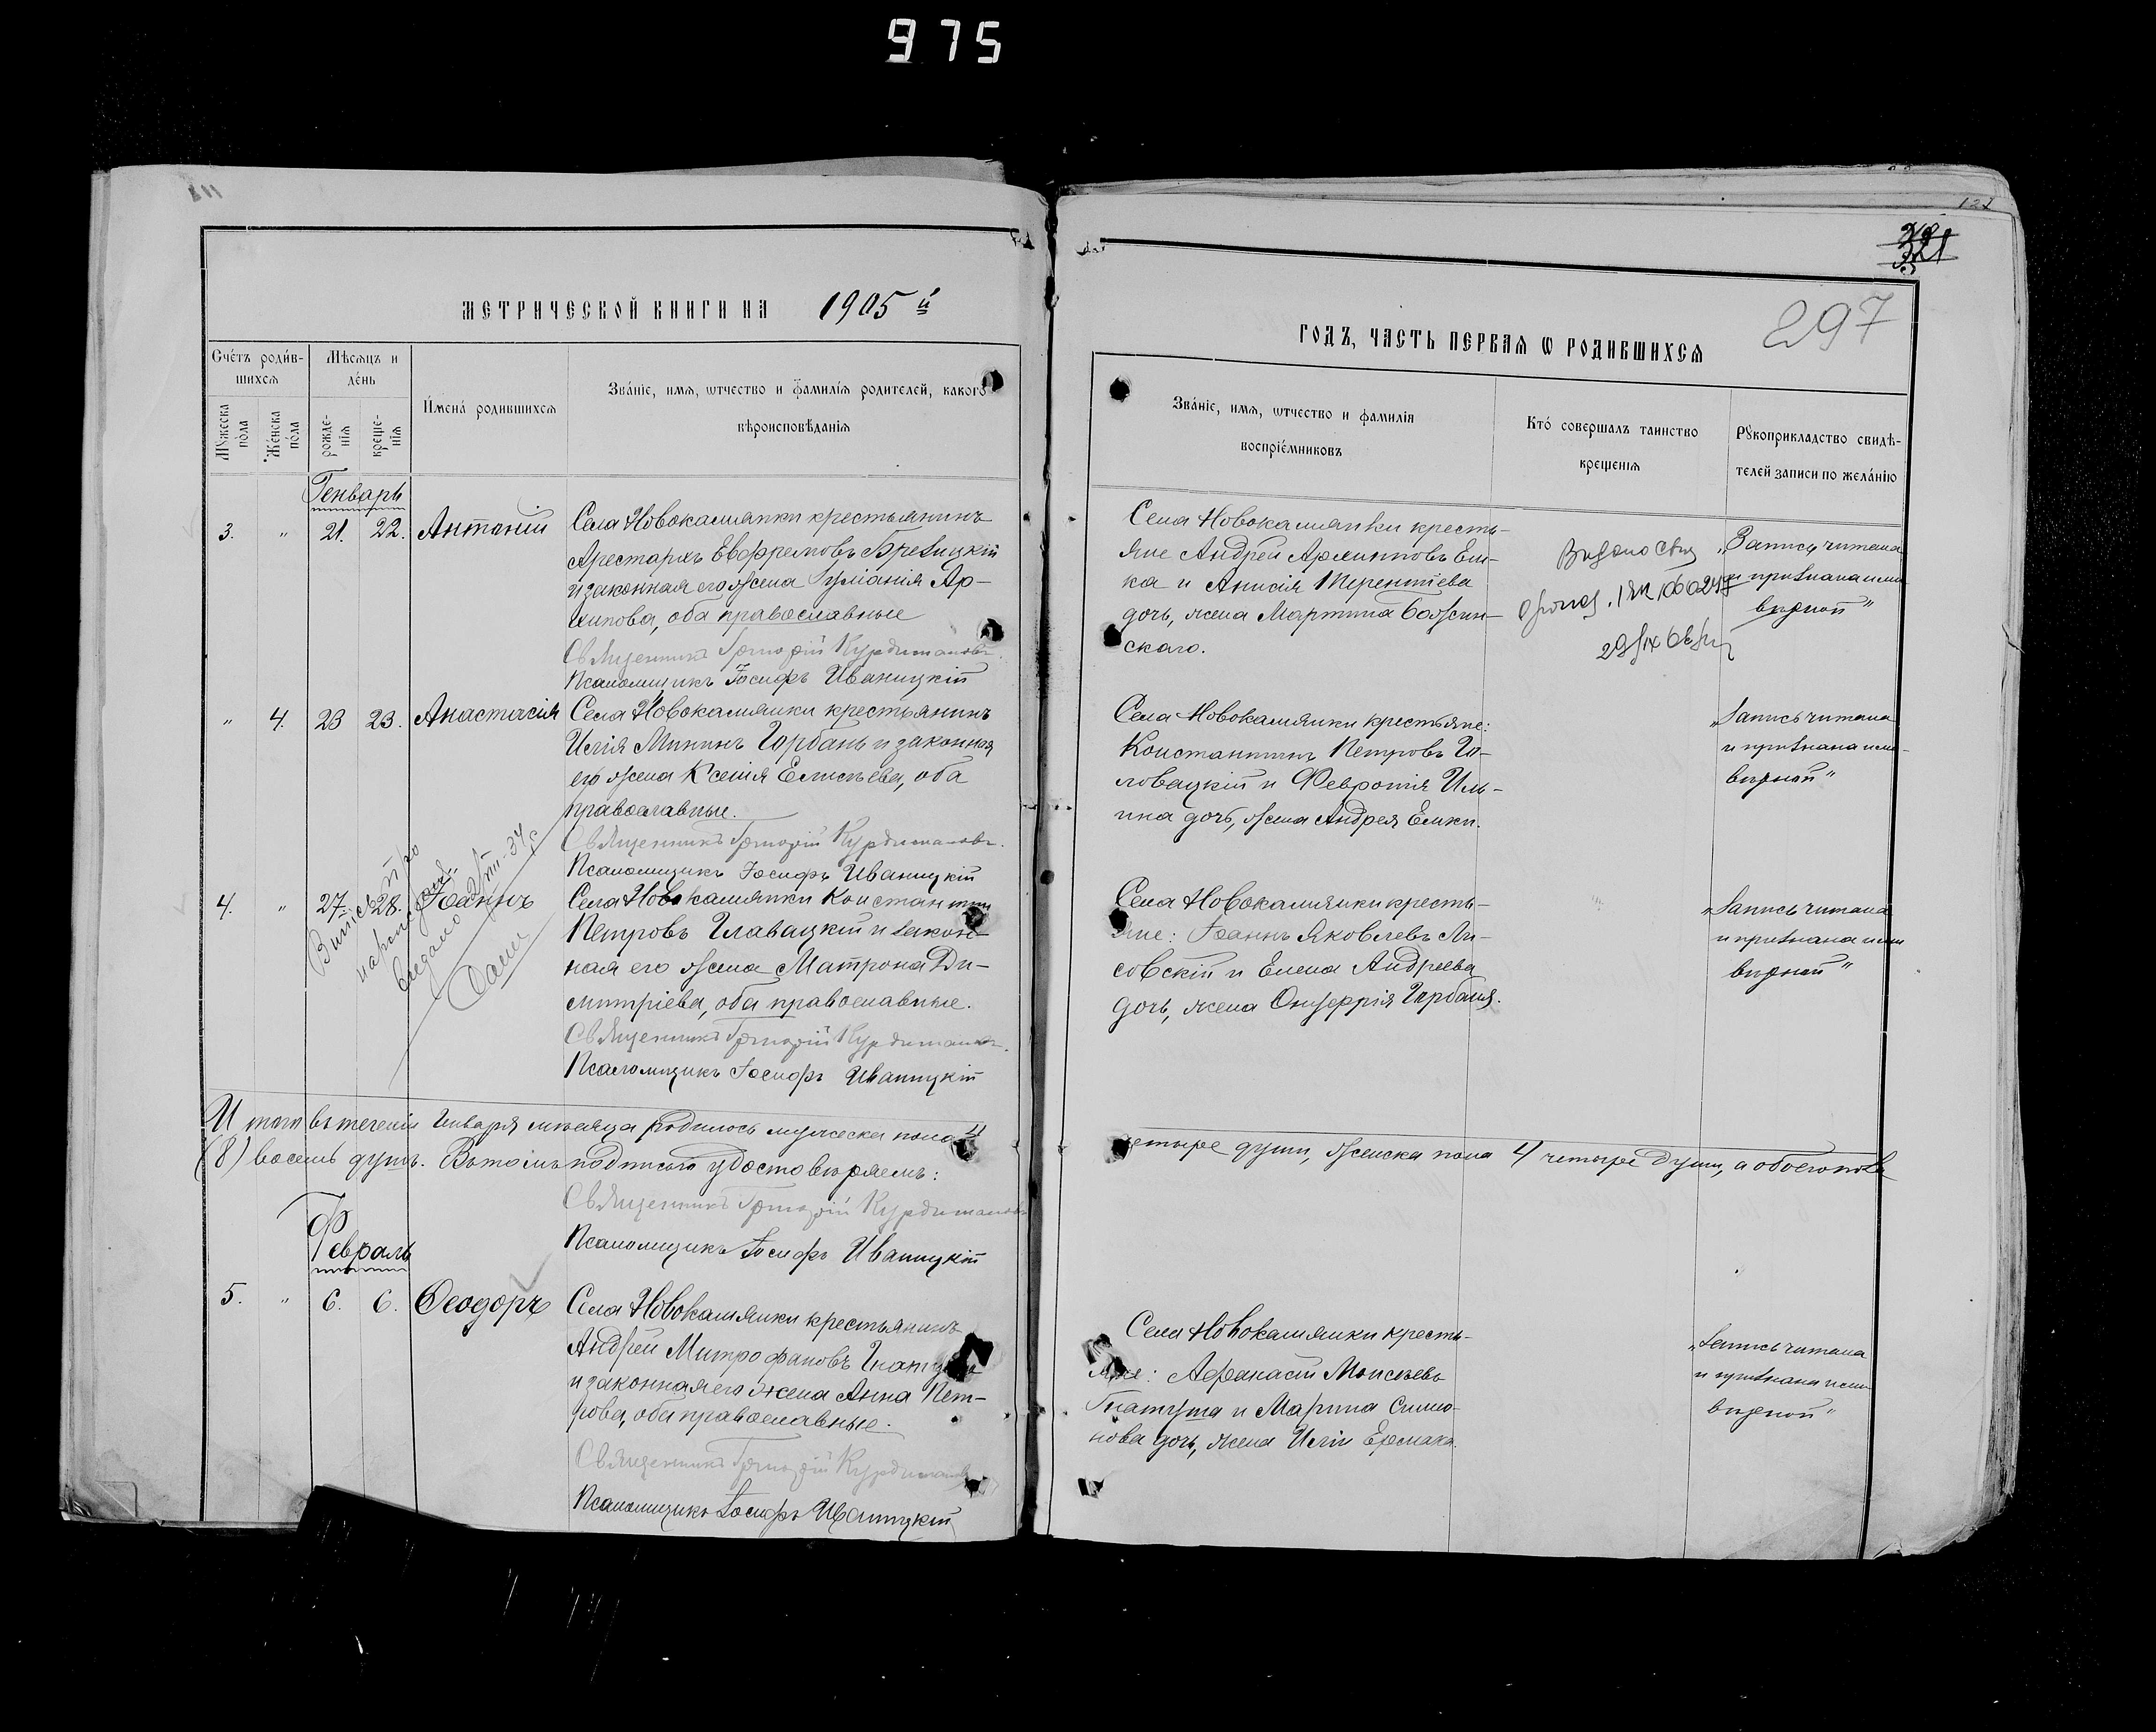 975
МЕТРИЧЕСКОЙ КНИГИ НА 1905й
Счетъ родив-
шихся
Мѣсяцъ и
день
Имена родившихся
Званіе, имя, ѡтчество и фамилія родителей, какого
вѣроисповѣданія
Мужеска
пола
Женска
пола
рожде-
нія
креще-
нія
Генварь
3. " 21. 22. Антоній
Села Новокамянки крестьянинъ
Арестархъ Евфремовъ Брезицкій
и законная его жена Іуліанія Ар-
хипова, оба православные
Священникъ Григорій Курдимановъ.
Псаломщикъ Іосифъ Иваницкій
" 4. 23 23. Анастасія
Села Новокамянки крестьянинъ
Илія Мининъ Горбань и законная
его жена Ксенія Елисѣева, оба
православные.
Священникъ Григорій Курдимановъ.
Псаломщикъ Іосифъ Иваницкій
4. " 27. 28. Іоаннъ
Села Новокамянки Константин
Петровъ Главацкій и закон-
ная его жена Матрона Ди-
митріева, оба православные.
Священникъ Григорій Курдимановъ.
Псаломщикъ Іосифъ Иваницкій
Витяг про
народж.
видано
Итого въ теченіи Января мѣсяца родилось мужеска пола 4
(8) восемь душъ. Въ томъ подписью удостовѣряемъ:
Священникъ Григорій Курдимановъ
Псаломщикъ Іосифъ Иваницкій
Февраль
5. " 6. 6. Ѳеодоръ
Села Новокамянки крестьянинъ
Андрей Митрофановъ
и законная его жена Анна Пет-
рова, оба православные.
Священникъ Григорій Курдимановъ
Псаломщикъ Іосифъ Иваницкій
321
297
ГОДЪ, ЧАСТЬ ПЕРВАЯ Ѡ РОДИВШИХСЯ
Званіе, имя, ѡтчество и фамилія
воспріемниковъ
Кто совершалъ таинство
крещенія
Рукоприкладство свидѣ-
телей записи по желанію
Села Новокамянки кресть-
яне Андрей Архиповъ Ел-
ка и Анисія Терентіева
дочь, жена Мартина Божин-
скаго.
Видано
"Запись читана
и признана нами
вѣрной"
Села Новокамянки крестьяне:
Константинъ Петровъ Го-
ловацкій и Февронія Иль-
ина дочь, жена Андрея Елки.
"Запись читана
и признана нами
вѣрной"
Села Новокамянки кресть-
яне: Іоаннъ Яковлевъ Ли-
совскій и Елена Андреева
дочь, жена Онуфрія Горбаня.
"Запись читана
и признана нами
вѣрной"
четыре души, женска пола 4 четыре души, а обоего пола
Села Новокамянки кресть-
яне: Афанасій Моисѣевъ
Гнатуша и Марина Симо-
нова дочь, жена Иліи Ермака.
"Запись читана
и признана нами
вѣрной"